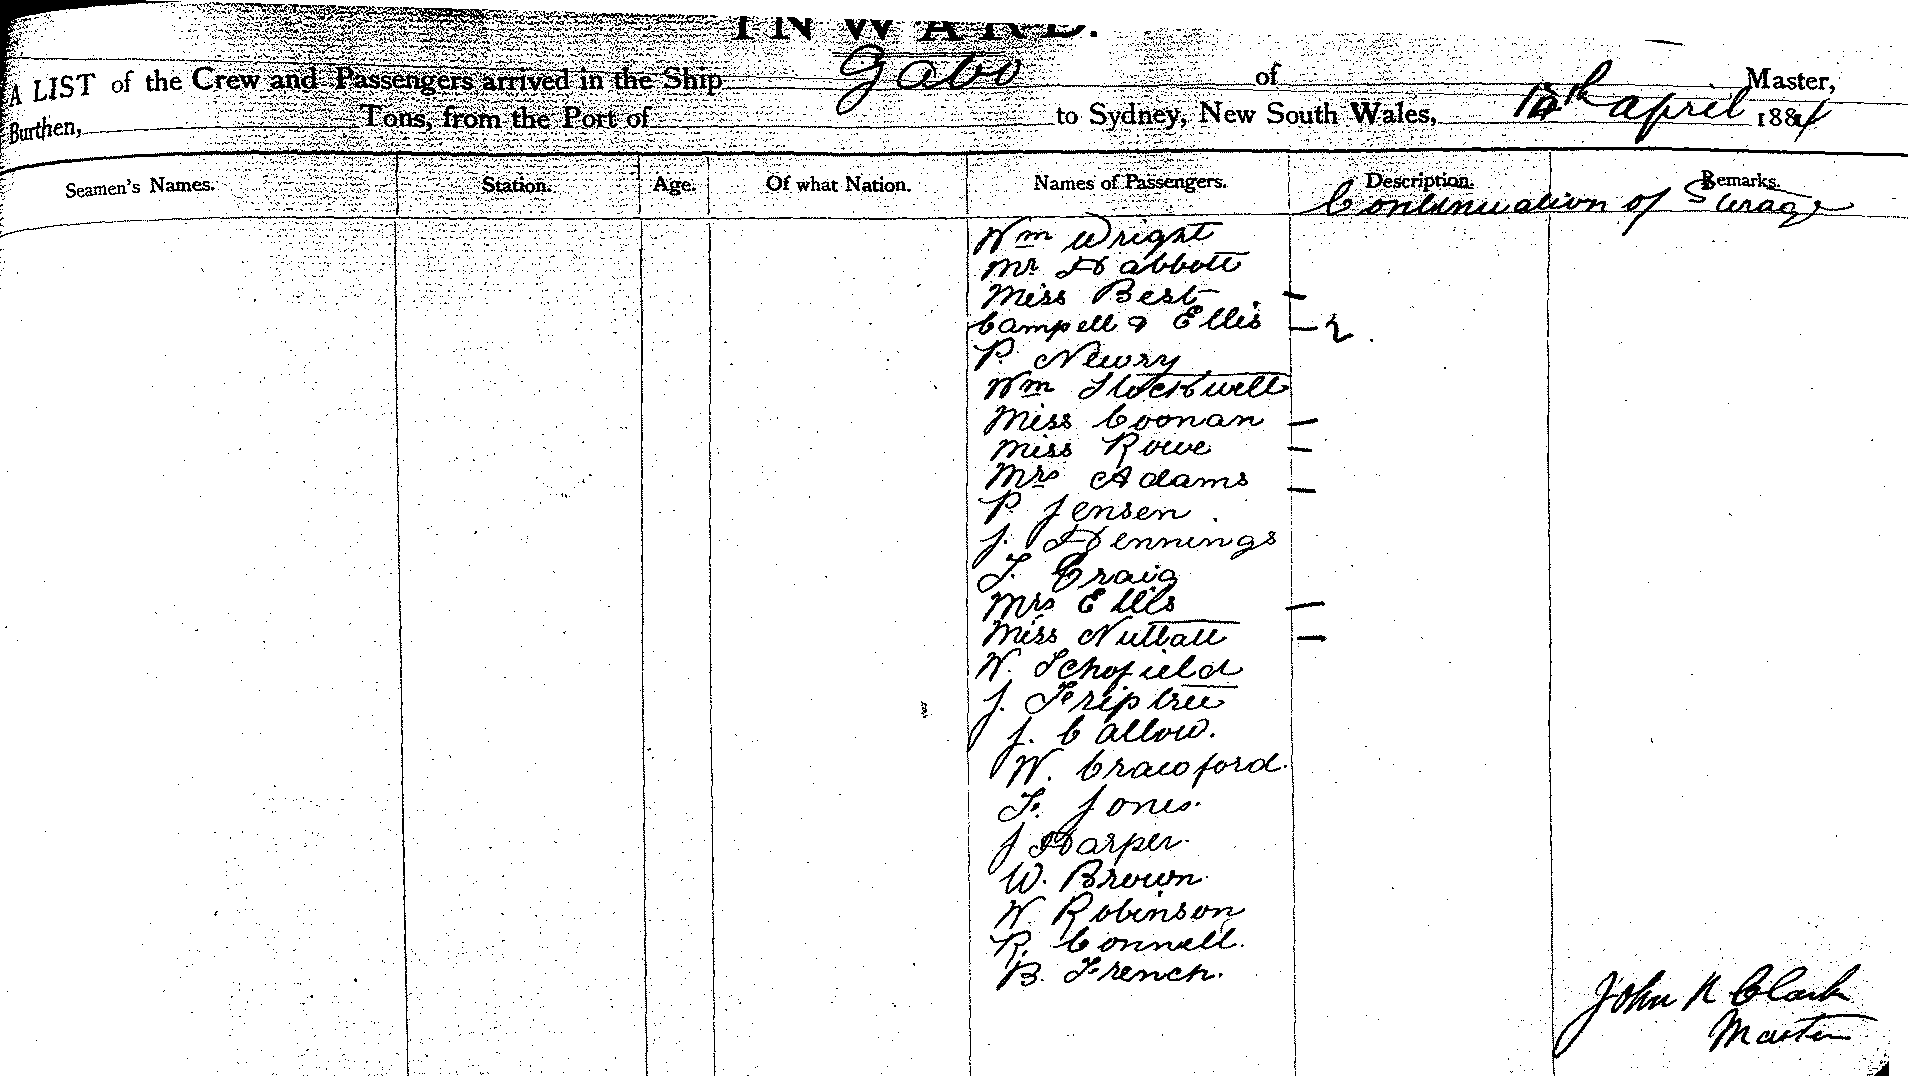 INWARD.
A LIST of the Crew and Passengers arrived in the Ship Gabo of Master,
Burthen, Tons, from the Port of to Sydney, New South Wales, April 1884
Seamen's Names. Station. Age. Of what Nation. Names of Passengers. Description. Remarks.
Continuation of Sterage
Wm Wright
Mr Habbott
Miss Best
Campell & Ellis 2
P. Newry
Wm Stockwell
Miss Coonan
Miss Rowe
Mrs Adams
P. Jensen
J. Hennings
T. Craig
Mrs Ellis
Miss Nuttall
W. Schofield
J. Friptree
J. Callow.
W. Crawford.
F. Jones.
J Harper.
W. Brown.
W Robinson
R. Connell.
B. French.
John R Clark
Master